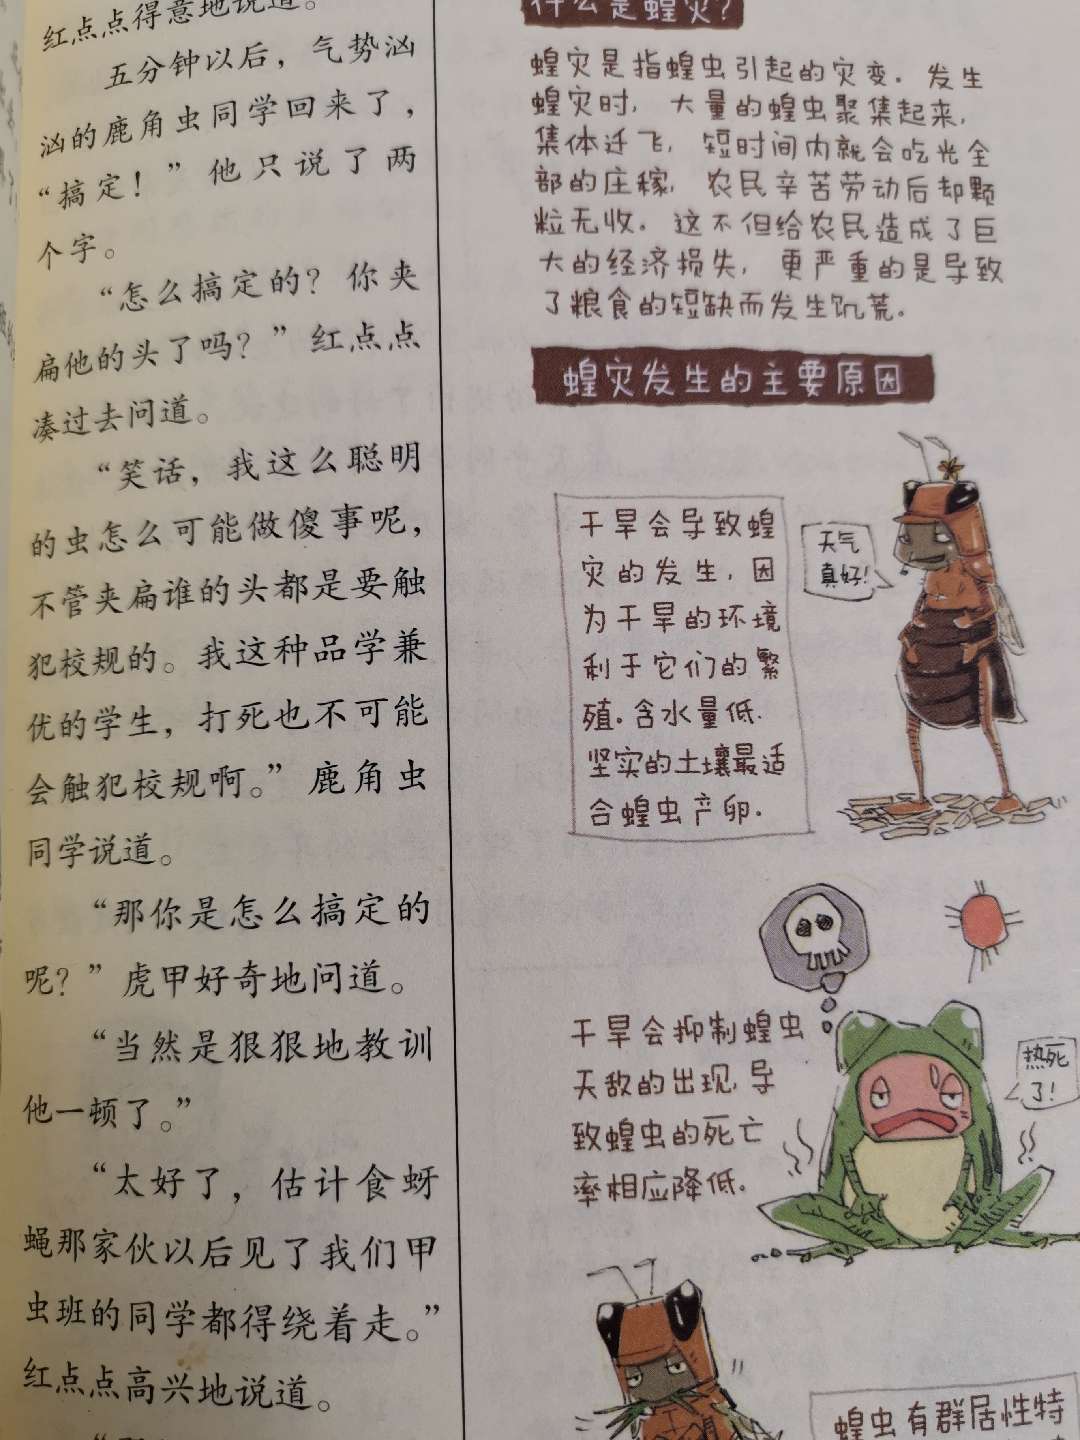 红点点得意地说道。
五分钟以后，气势汹
汹的鹿角虫同学回来了，
“搞定！”他只说了两
个字。
“怎么搞定的？你夹
扁他的头了吗？”红点点
凑过去问道。
“笑话，我这么聪明
的虫怎么可能做傻事呢，
不管夹扁谁的头都是要触
犯校规的。我这种品学兼
优的学生，打死也不可能
会触犯校规啊。”鹿角虫
同学说道。
“那你是怎么搞定的
呢？”虎甲好奇地问道。
“当然是狠狠地教训
他一顿了。”
“太好了，估计食蚜
蝇那家伙以后见了我们甲
虫班的同学都得绕着走。”
红点点高兴地说道。
什么是蝗灾？
蝗灾是指蝗虫引起的灾变。发生
蝗灾时，大量的蝗虫聚集起来，
集体迁飞，短时间内就会吃光全
部的庄稼，农民辛苦劳动后却颗
粒无收。这不但给农民造成了巨
大的经济损失，更严重的是导致
了粮食的短缺而发生饥荒。
蝗灾发生的主要原因
干旱会导致蝗
灾的发生，因
为干旱的环境
利于它们的繁
殖。含水量低、
坚实的土壤最适
合蝗虫产卵。
天气
真好！
干旱会抑制蝗虫
天敌的出现，导
致蝗虫的死亡
率相应降低。
热死
了！
蝗虫有群居性特